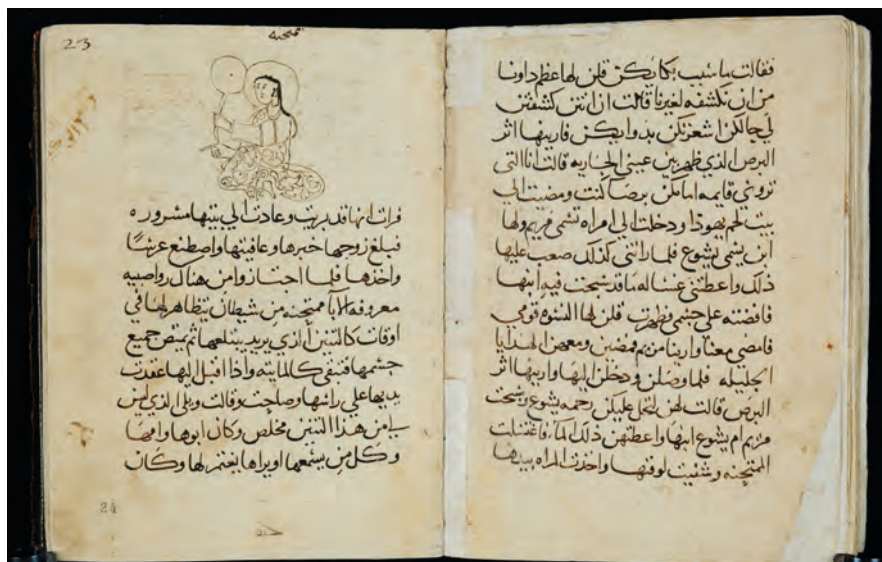 فقالت ما سبب بكايكن قلن لها عظم داونا
من ان نكشفه لغيرنا قالت ان انتن كشفتن
لي حالكن اشعرتكن بدوايكن فارينها اثر
البرص الذي ظهر بين عيني الجاريه قالت انا التي
تروني قايمه امامكن برصا كنت ومضيت الي
بيت لحم يهوذا ودخلت الي امراه تسمي مريم ولها
ابن يسمي يشوع فلما راتني كذلك صعب عليها
ذلك واعطتني غساله ما قد سبحت فيه ابنها
فافضته علي جسمي فطهرت قلن لها النسوه قومي
فامضي معنا وارينا مريم فمضين ومعهن الهدايا
الجليله فلما وصلن ودخلن اليها وارينها اثر
البرص قالت لهن لتحل عليكن رحمه يشوع وسبحت
مريم ام يشوع ابنها واعطتهن ذلك الما فاغتسلت
الممتحنه وشفيت لوقتها واخذت المراه بيدها
23
ممتحنه
فرات انها قد بريت وعادت الي بيتها مسروره
فبلغ زوجها خبرها وعافيتها واصطنع عرسًا
واخذها فلما اجتازوا من هنال رواصبيه
معروفه الابا ممتحنه من شيطان يتظاهر لها في
اوقات كالتنين الذي يريد يبتلعها ثم يمتص جميع
جسمها فتبقي كالمايته واذا اقبل اليها عقدت
يديها علي راسها وصاحت وقالت ويلي الذي ليس
لي من هذا التنين مخلص وكان ابوها وامها
وكل من يسمعها او يراها يغتم لها وكان
24